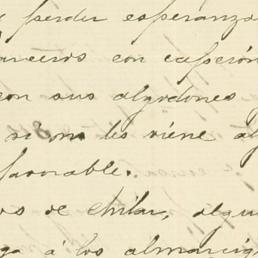 perder esperanza
arceros con
con sus algodones
si no les viene al
favorable.
os de chilar, algu
ga á los almarcig